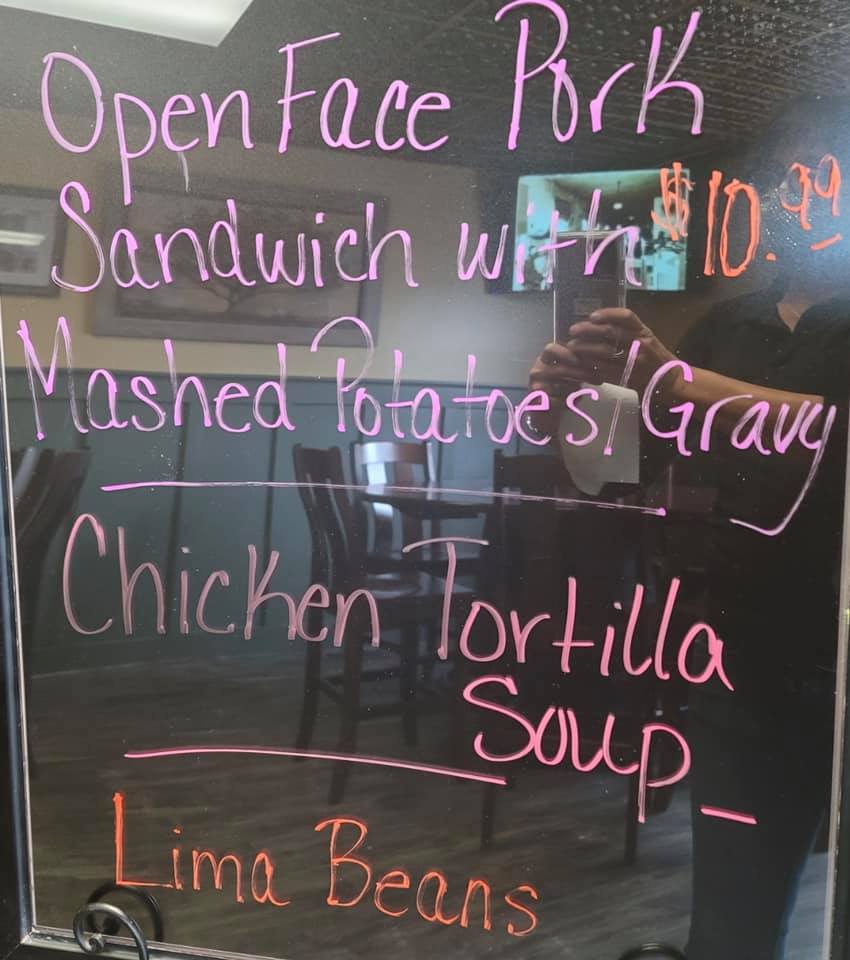 Open Face Pork
Sandwich with $10.99
Mashed Potatoes/Gravy
Chicken Tortilla
Soup
Lima Beans